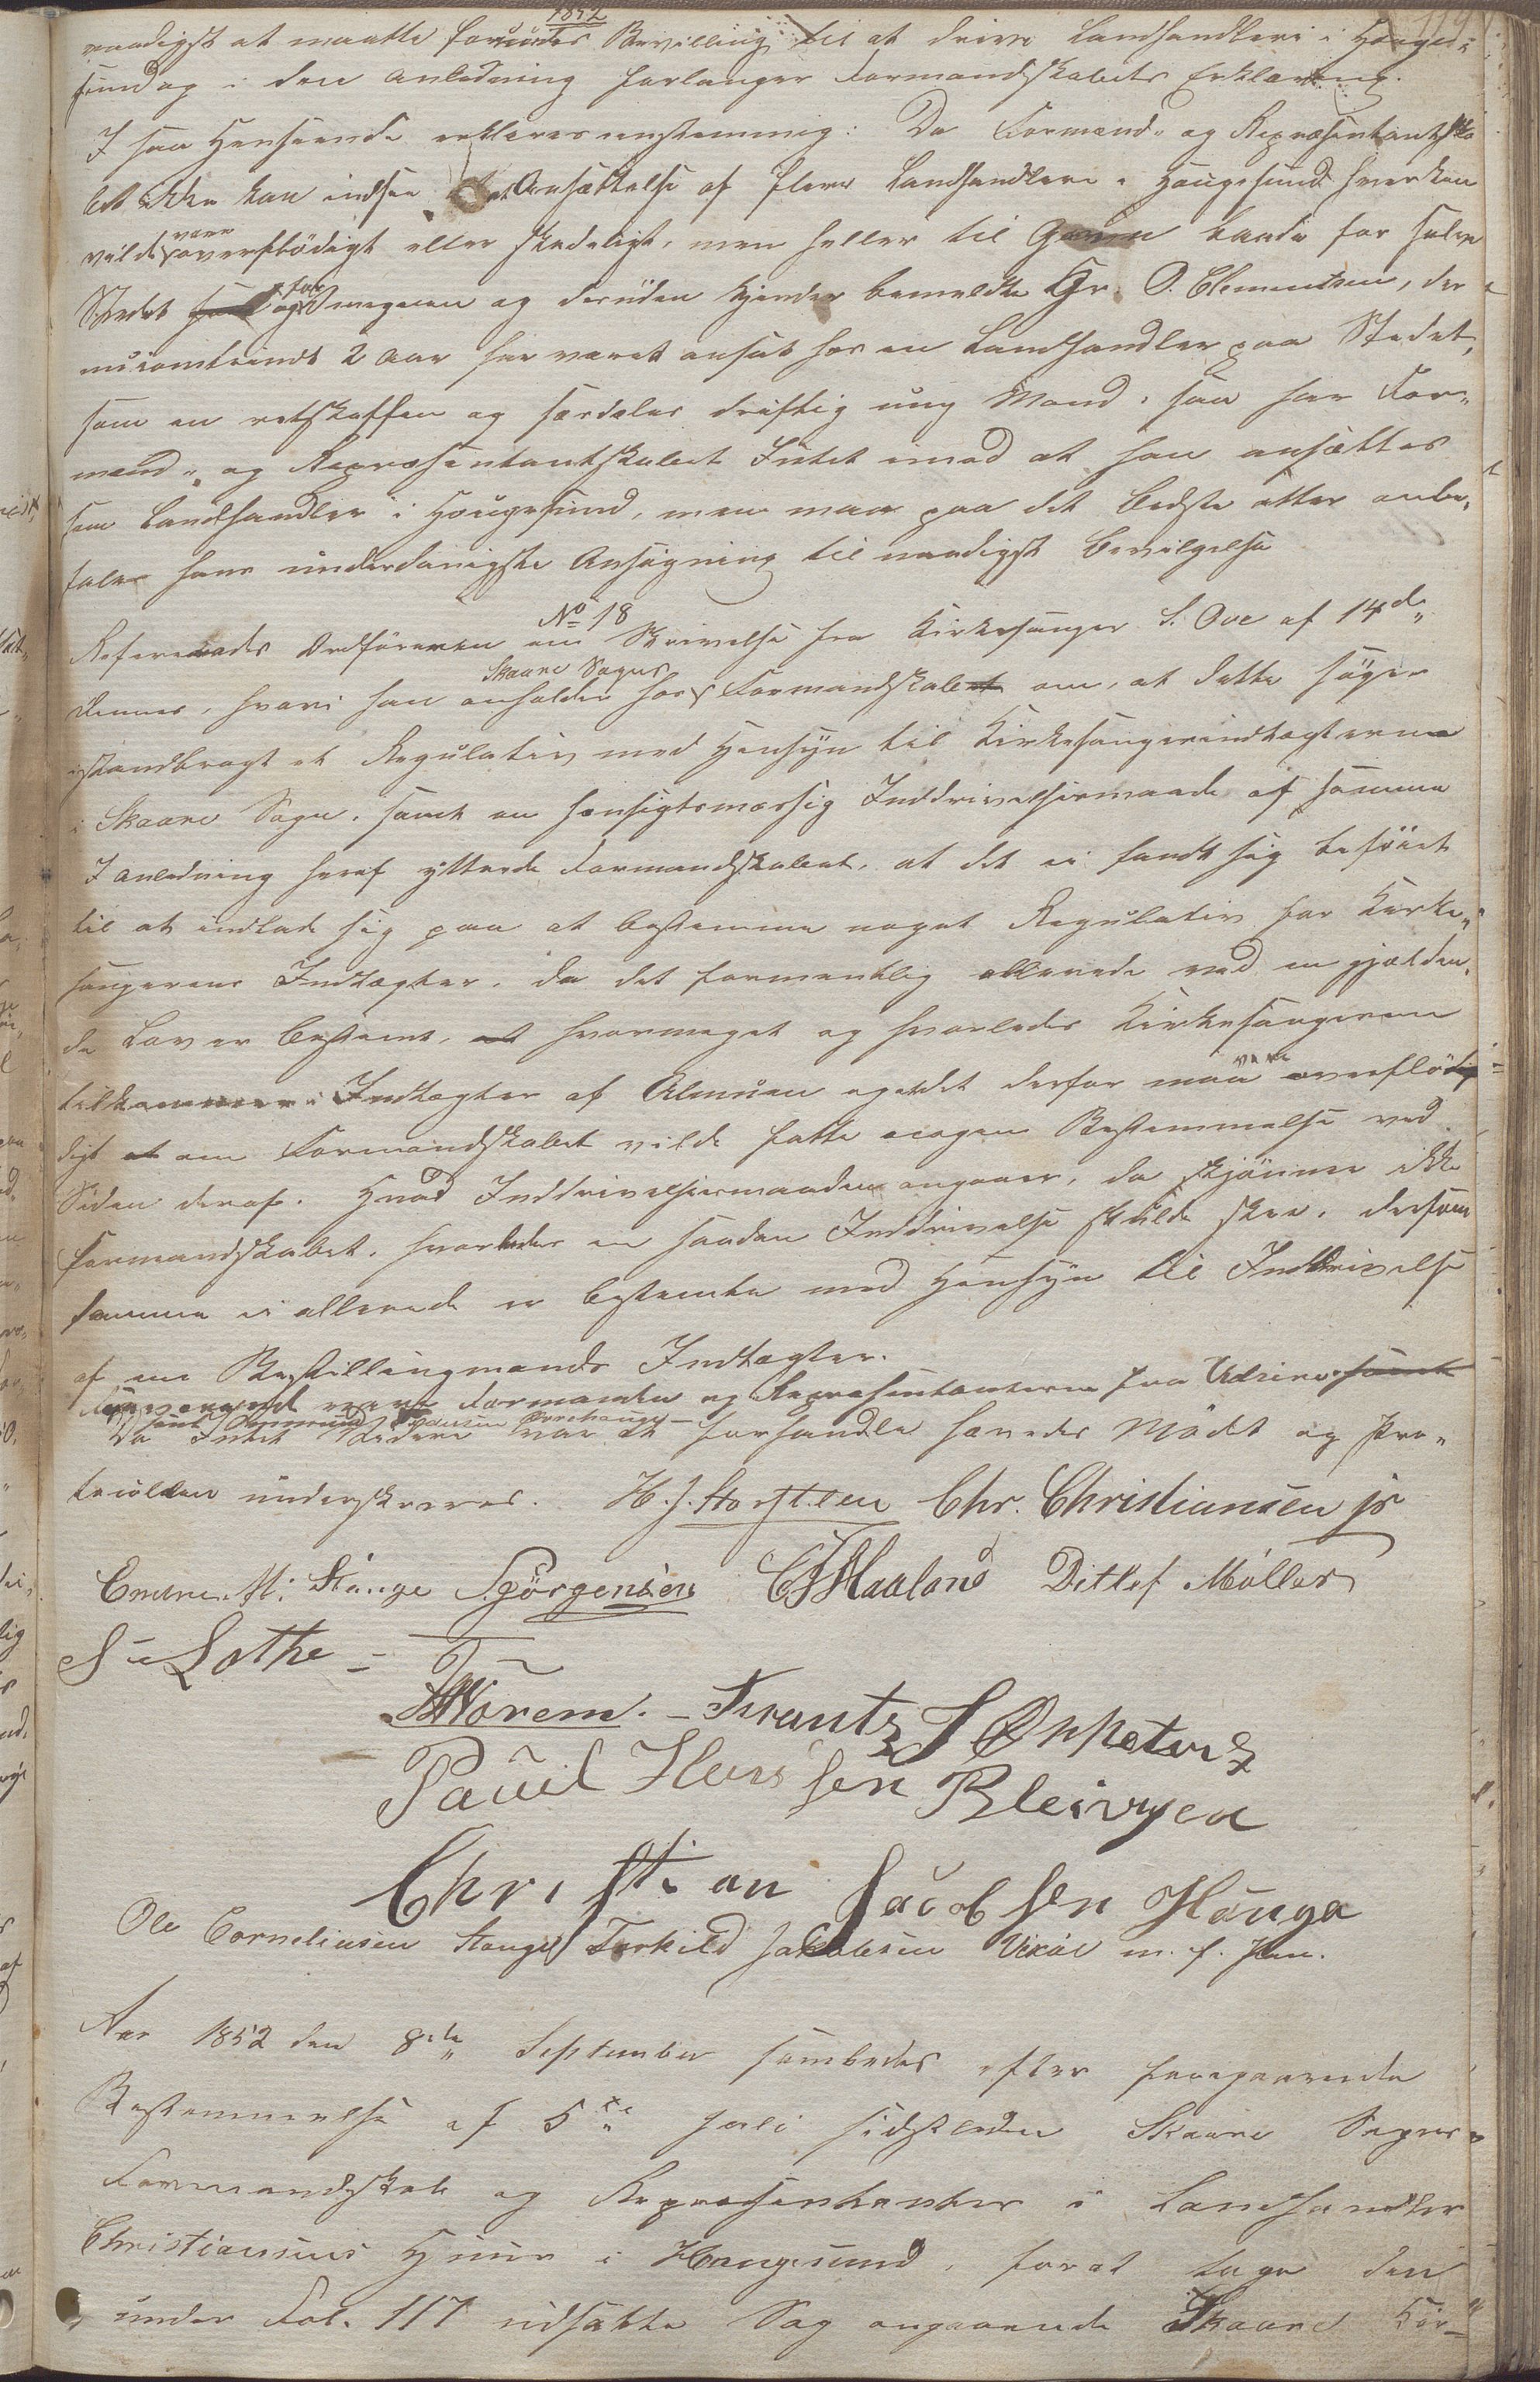 1852
119
naadigst at maatte forundes Bevilling til at drive Landhandleri i Houge-
sund og i den Anledning forlanger Formandskabets Erklæring.
I saa Henseende erklæres enstemmig: Da Formænd- og Repræsentantska
bet ikke kan indsee at Ansættelse af flere Landhandlere i Hougesund hverken
vilde være overflødigt eller skadeligt, men heller til Gavn baade for selve
Stedet og for Omegnen og desuden kjender bemeldte Hr. O. Clementsen, der
nu omtrendt 2 Aar har været ansat hos en Landhandler paa Stedet,
som en retskaffen og særdeles driftig ung Mand, saa har For-
mænd- og Repræsentantskabet Intet imod at han ansættes
som Landhandler i Hougesund, men maa paa det Bedste atter anbe-
fale hans underdanigste Ansøgning til naadigst Bevilgelse
No 18
Refereredes Ordføreren en Skrivelse fra Kirkesanger S. Ove af 14de
dennes, hvori han anholder hos Skaare Sogns Formandskab om, at dette søger
istandbragt et Regulativ med Hensyn til Kirkesangerindtægterne
i Skaare Sogn, samt en hensigtsmæssig Inddrivelsesmaade af samme
I Anledning heraf yttrede Formandskabet, at det ei fandt sig beføiet
til at indlade sig paa at bestemme noget Regulativ for Kirke-
sangerens Indtægter, da det formentlig allerede ved en gjælden-
de Lov er bestemt, hvormeget og hvorledes Kirkesangeren
tilkommer i Indtægter af Almuen og at det derfor maa være overflødig
digt om Formandskabet vilde fatte nogen Bestemmelse ved
Siden deraf. Hvad Inddrivelsesmaaden angaaer, da skjønner ikke
Formandskabet, hvorledes en saadan Inddrivelse skulde skee, dersom
samme ei allerede er bestemte med Hensyn til Inddrivelse
af en Bestillingmands Indtægter.
Fraværende vare Formanden og Repræsentanterne fra Udsire samt
Da Intet videre var at forhandle hævedes Mødet og Pro-
tocollen underskreves. H. J. Storsteen Chr. Christiansen jr
Endre M: Hauge S. Jörgensen C F Haaland Ditlef Möller
S = Lothe =
T Wörem. - Frantz J Oppetersz
Pauil Hansen Bleivigen
Christian Jacobsen Hauge
Ole Corneliusen Hauge Torkild Jakobsen Vikse m. f. Pen.
Aar 1852 den 8de September sambledes efter foregaaende
Bestemmelse af 5te Juli sidstleden Skaare Sogns
Formandskab og Repræsentanter i Landhandler
Christiansens Huus i Hougesund, for at tage den
under Fol. 117 udsatte Sag angaaende Skaare Kir-